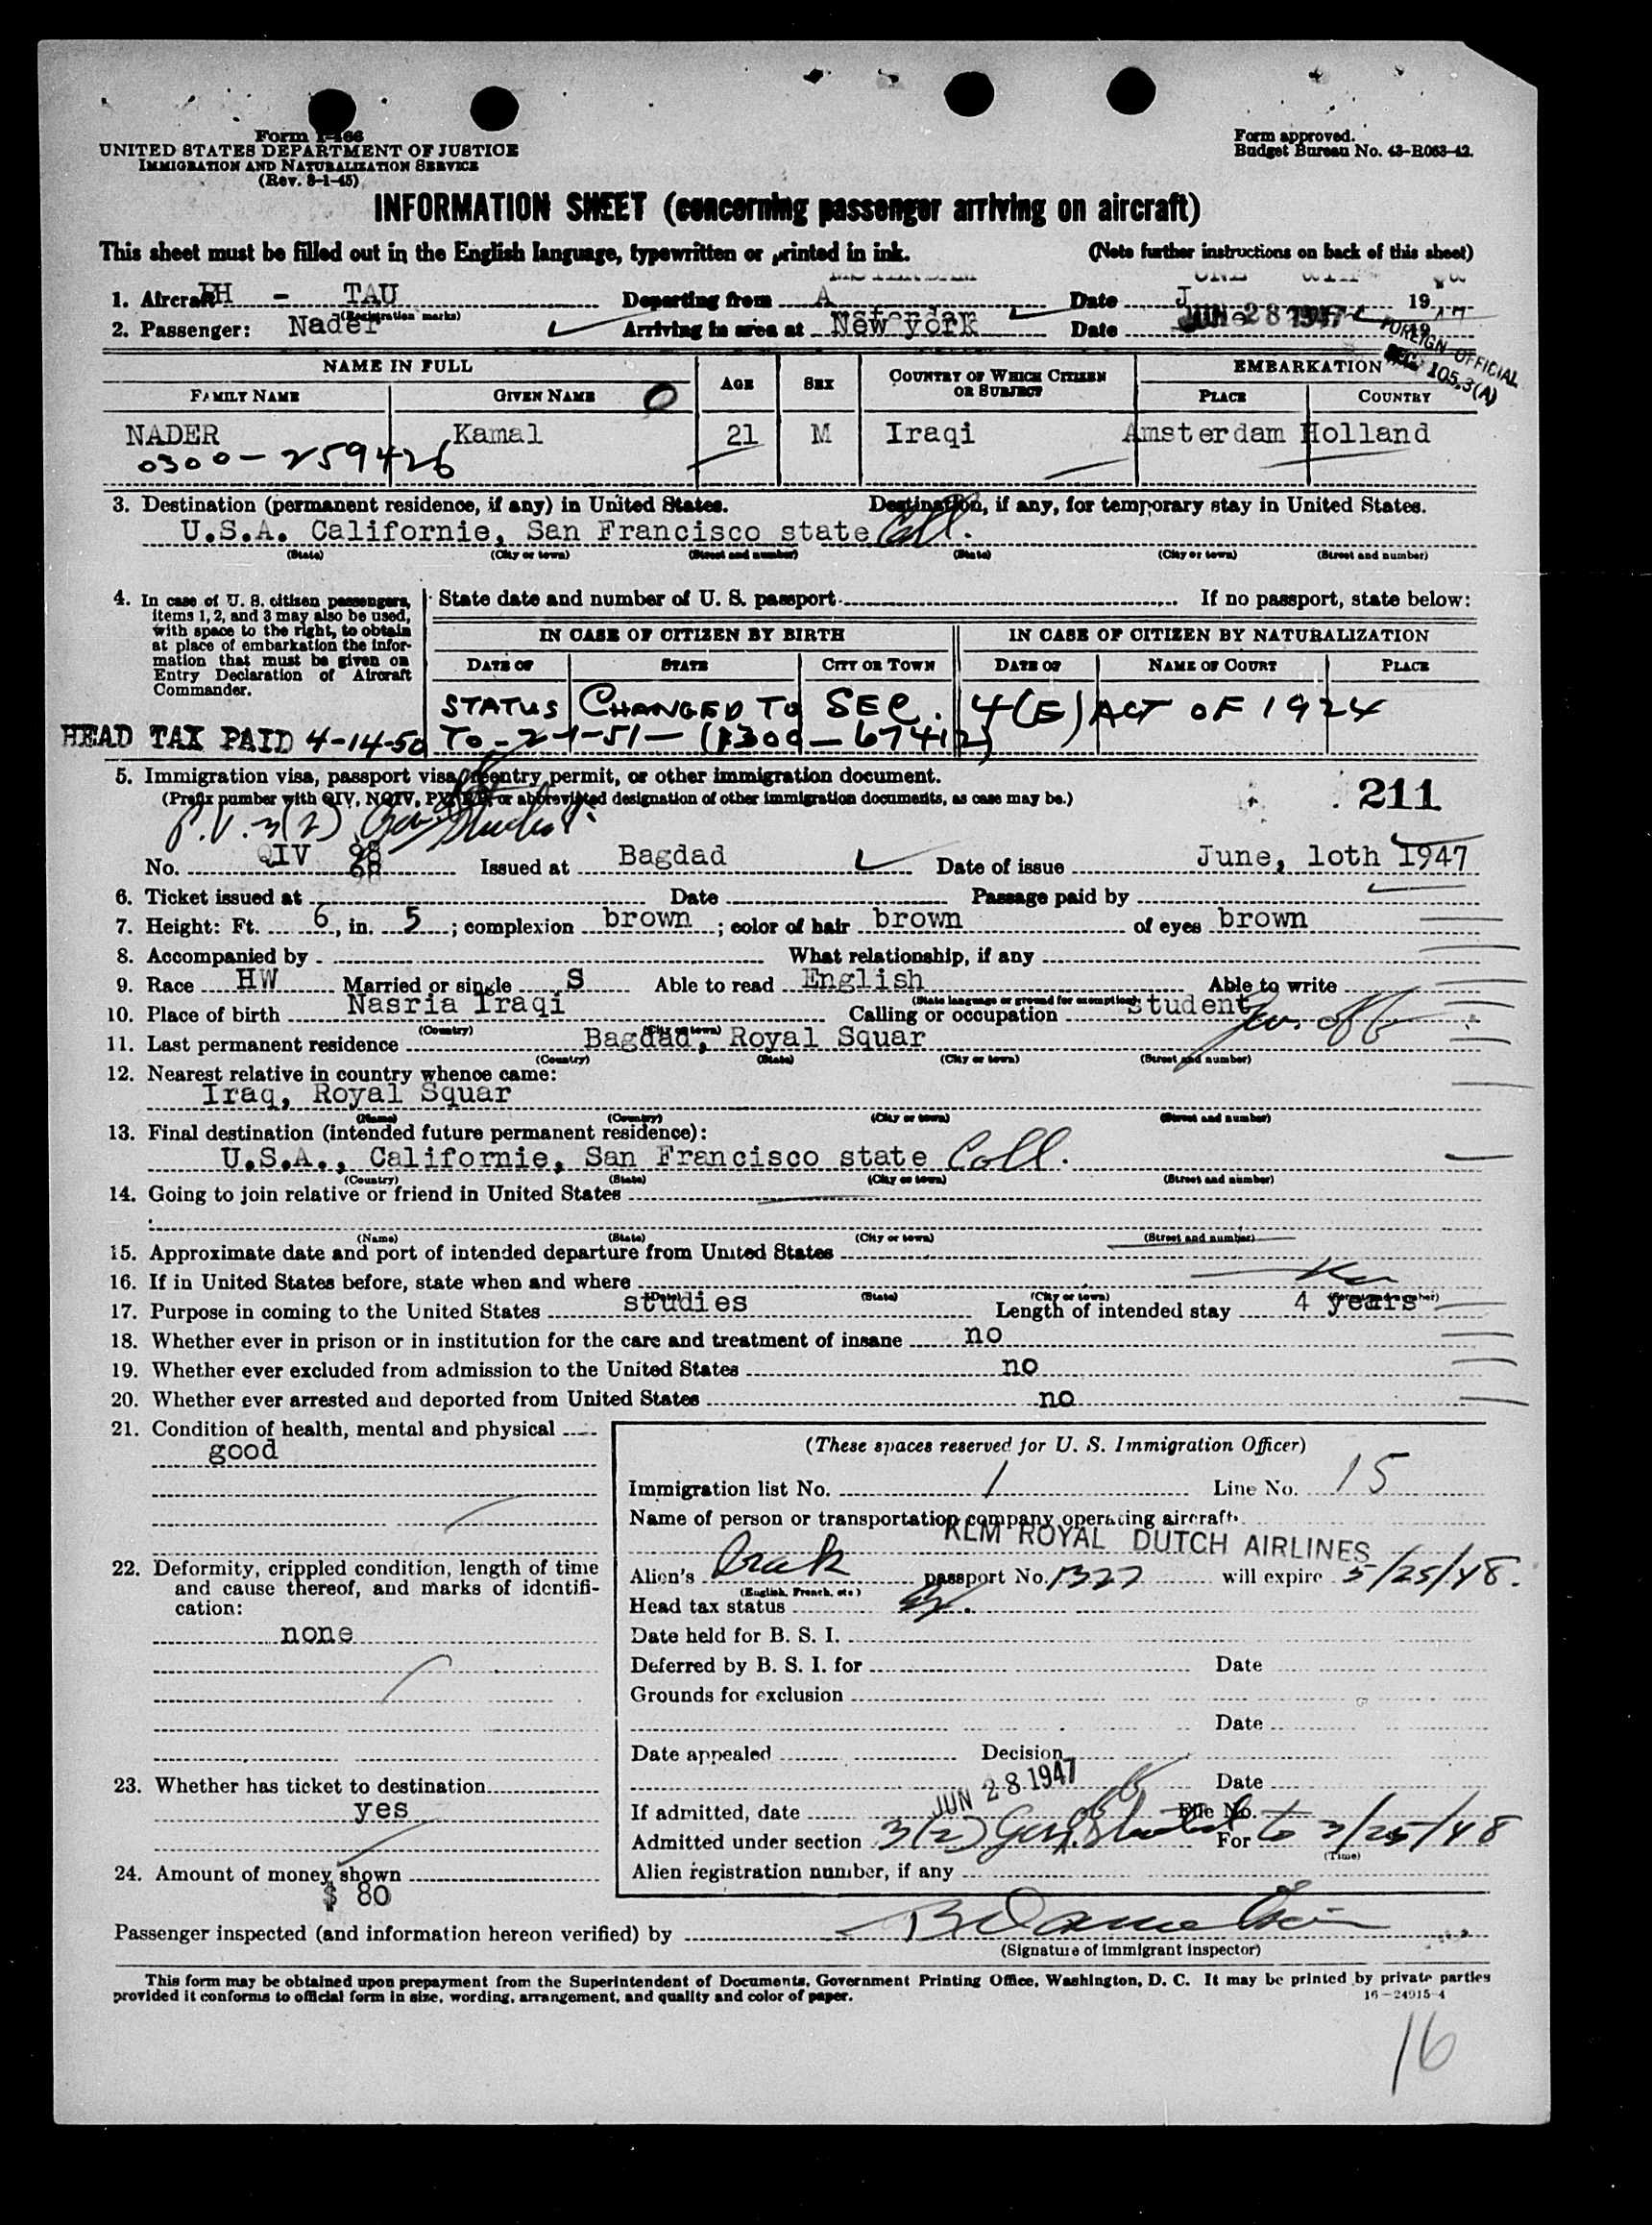 Form I-466
UNITED STATES DEPARTMENT OF JUSTICE
IMMIGRATION AND NATURALIZATION SERVICE
(Rev. 8-1-45)
Form approved.
Budget Bureau No. 43-R063-42.
INFORMATION SHEET (concerning passenger arriving on aircraft)
This sheet must be filled out in the English language, typewritten or printed in ink. (Note further instructions on back of this sheet)
1. Aircraft PH - TAU (Registration marks) Departing from Amsterdam Date 19
2. Passenger: Nader Arriving in area at New york Date JUN 28 1947 19
FOREIGN OFFICIAL
SEC. 105.3(A)
NAME IN FULL AGE SEX COUNTRY OF WHICH CITIZEN OR SUBJECT EMBARKATION
FAMILY NAME GIVEN NAME PLACE COUNTRY
NADER Kamal 21 M Iraqi Amsterdam Holland
0300-259426
3. Destination (permanent residence, if any) in United States. Destination, if any, for temporary stay in United States.
U.S.A. Californie, San Francisco state Coll.
(State) (City or town) (Street and number) (State) (City or town) (Street and number)
4. In case of U. S. citizen passengers, items 1, 2, and 3 may also be used, with space to the right, to obtain at place of embarkation the information that must be given on Entry Declaration of Aircraft Commander.
State date and number of U. S. passport If no passport, state below:
IN CASE OF CITIZEN BY BIRTH IN CASE OF CITIZEN BY NATURALIZATION
DATE OF STATE CITY OR TOWN DATE OF NAME OF COURT PLACE
STATUS CHANGED TO SEC. 4(E) ACT OF 1924
HEAD TAX PAID 4-14-50 TO-2-1-51- (1300-67412)
5. Immigration visa, passport visa, reentry permit, or other immigration document.
(Prefix number with QIV, NQIV, PV, RP, or abbreviated designation of other immigration documents, as case may be.)
211
P.V. 3(2)
No. QIV 98 Issued at Bagdad Date of issue June, 1oth 1947
6. Ticket issued at Date Passage paid by
7. Height: Ft. 6, in. 5; complexion brown; color of hair brown of eyes brown
8. Accompanied by What relationship, if any
9. Race HW Married or single S Able to read English Able to write
(State language or ground for exemption)
10. Place of birth Nasria Iraqi Calling or occupation student
(Country) (City or town)
11. Last permanent residence Bagdad, Royal Squar
(Country) (State) (City or town) (Street and number)
12. Nearest relative in country whence came:
Iraq, Royal Squar
(Name) (Country) (City or town) (Street and number)
13. Final destination (intended future permanent residence):
U.S.A., Californie, San Francisco state Coll.
(Country) (State) (City or town) (Street and number)
14. Going to join relative or friend in United States
(Name) (State) (City or town) (Street and number)
15. Approximate date and port of intended departure from United States
16. If in United States before, state when and where
(Date) (State) (City or town) (Street and number)
17. Purpose in coming to the United States studies Length of intended stay 4 years
18. Whether ever in prison or in institution for the care and treatment of insane no
19. Whether ever excluded from admission to the United States no
20. Whether ever arrested and deported from United States no
21. Condition of health, mental and physical
good
22. Deformity, crippled condition, length of time and cause thereof, and marks of identification:
none
23. Whether has ticket to destination
yes
24. Amount of money shown
$ 80
(These spaces reserved for U. S. Immigration Officer)
Immigration list No. 1 Line No. 15
Name of person or transportation company operating aircraft
KLM ROYAL DUTCH AIRLINES
Alien's passport No. 1327 will expire 5/25/48.
(English, French, etc)
Head tax status
Date held for B. S. I.
Deferred by B. S. I. for Date
Grounds for exclusion
Date
Date appealed Decision
Date
If admitted, date JUN 28 1947 File No.
Admitted under section 3(2) For to 3/25/48
(Time)
Alien registration number, if any
Passenger inspected (and information hereon verified) by
(Signature of immigrant inspector)
This form may be obtained upon prepayment from the Superintendent of Documents, Government Printing Office, Washington, D. C. It may be printed by private parties
provided it conforms to official form in size, wording, arrangement, and quality and color of paper. 16-24915-4
16